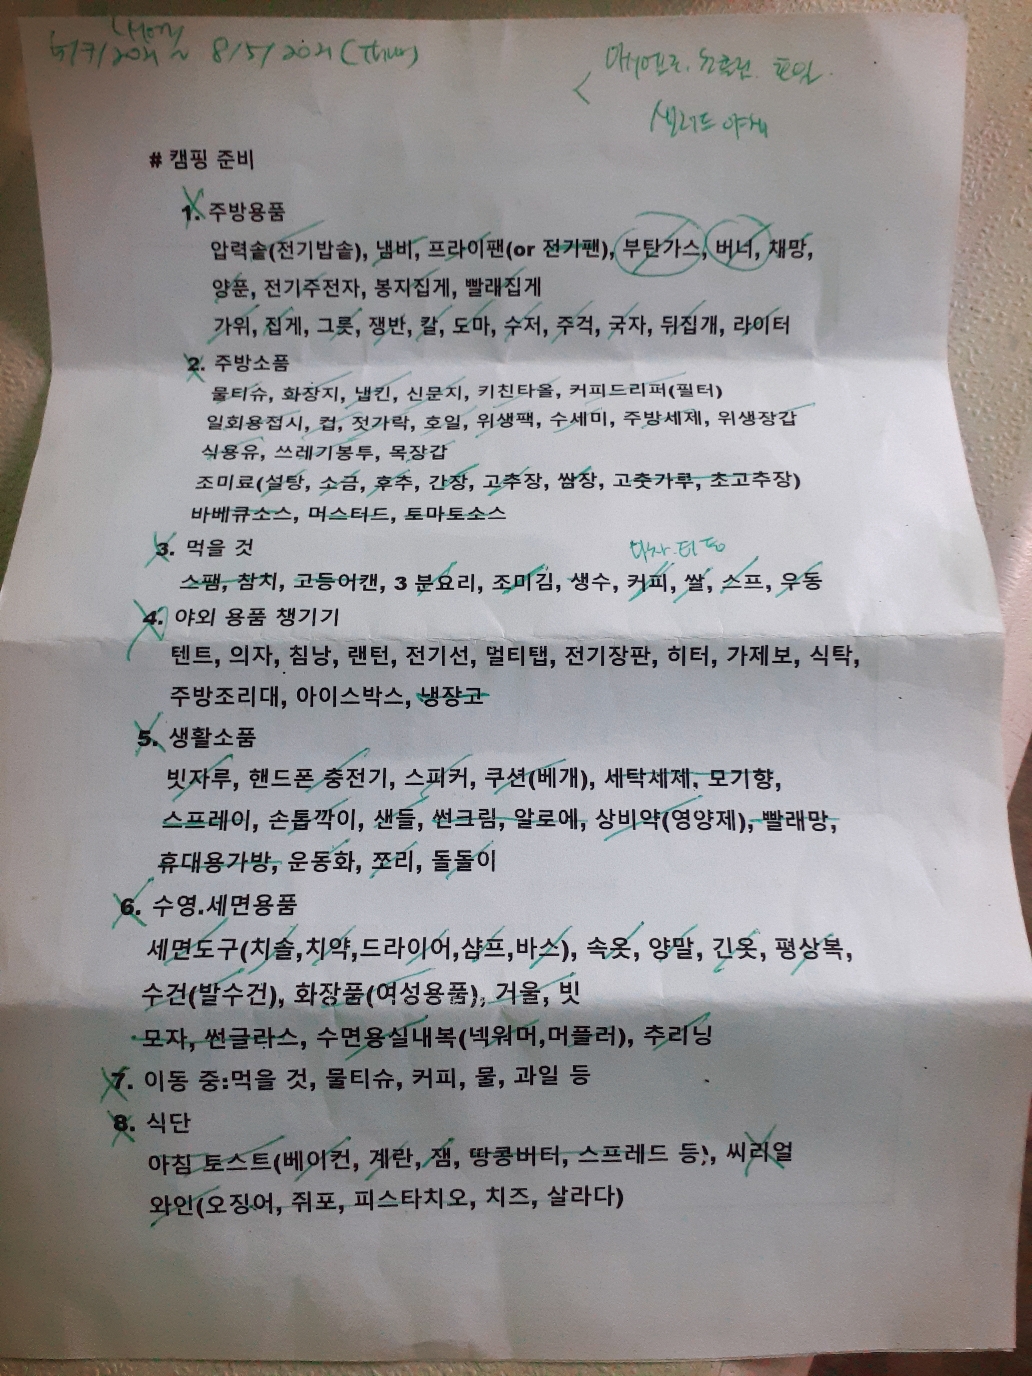 8/5/2021
샐러드 야채
# 캠핑 준비
1. 주방용품
압력솥(전기밥솥), 냄비, 프라이팬(or 전기팬), 부탄가스, 버너, 채망,
양푼, 전기주전자, 봉지집게, 빨래집게
가위, 집게, 그릇, 쟁반, 칼, 도마, 수저, 주걱, 국자, 뒤집개, 라이터
2. 주방소품
물티슈, 화장지, 냅킨, 신문지, 키친타올, 커피드리퍼(필터)
일회용접시, 컵, 젓가락, 호일, 위생팩, 수세미, 주방세제, 위생장갑
식용유, 쓰레기봉투, 목장갑
조미료(설탕, 소금, 후추, 간장, 고추장, 쌈장, 고춧가루, 초고추장)
바베큐소스, 머스터드, 토마토소스
3. 먹을 것
스팸, 참치, 고등어캔, 3 분요리, 조미김, 생수, 커피, 쌀, 스프, 우동
4. 야외 용품 챙기기
텐트, 의자, 침낭, 랜턴, 전기선, 멀티탭, 전기장판, 히터, 가제보, 식탁,
주방조리대, 아이스박스, 냉장고
5. 생활소품
빗자루, 핸드폰 충전기, 스피커, 쿠션(베개), 세탁세제, 모기향,
스프레이, 손톱깍이, 샌들, 썬크림, 알로에, 상비약(영양제), 빨래망,
휴대용가방, 운동화, 쪼리, 돌돌이
6. 수영.세면용품
세면도구(치솔,치약,드라이어,샴프,바스), 속옷, 양말, 긴옷, 평상복,
수건(발수건), 화장품(여성용품), 거울, 빗
모자, 썬글라스, 수면용실내복(넥워머,머플러), 추리닝
7. 이동 중:먹을 것, 물티슈, 커피, 물, 과일 등
8. 식단
아침 토스트(베이컨, 계란, 잼, 땅콩버터, 스프레드 등), 씨리얼
와인(오징어, 쥐포, 피스타치오, 치즈, 살라다)